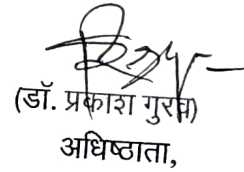 (डॉ. प्रकाश गुरव)
अधिष्ठाता,